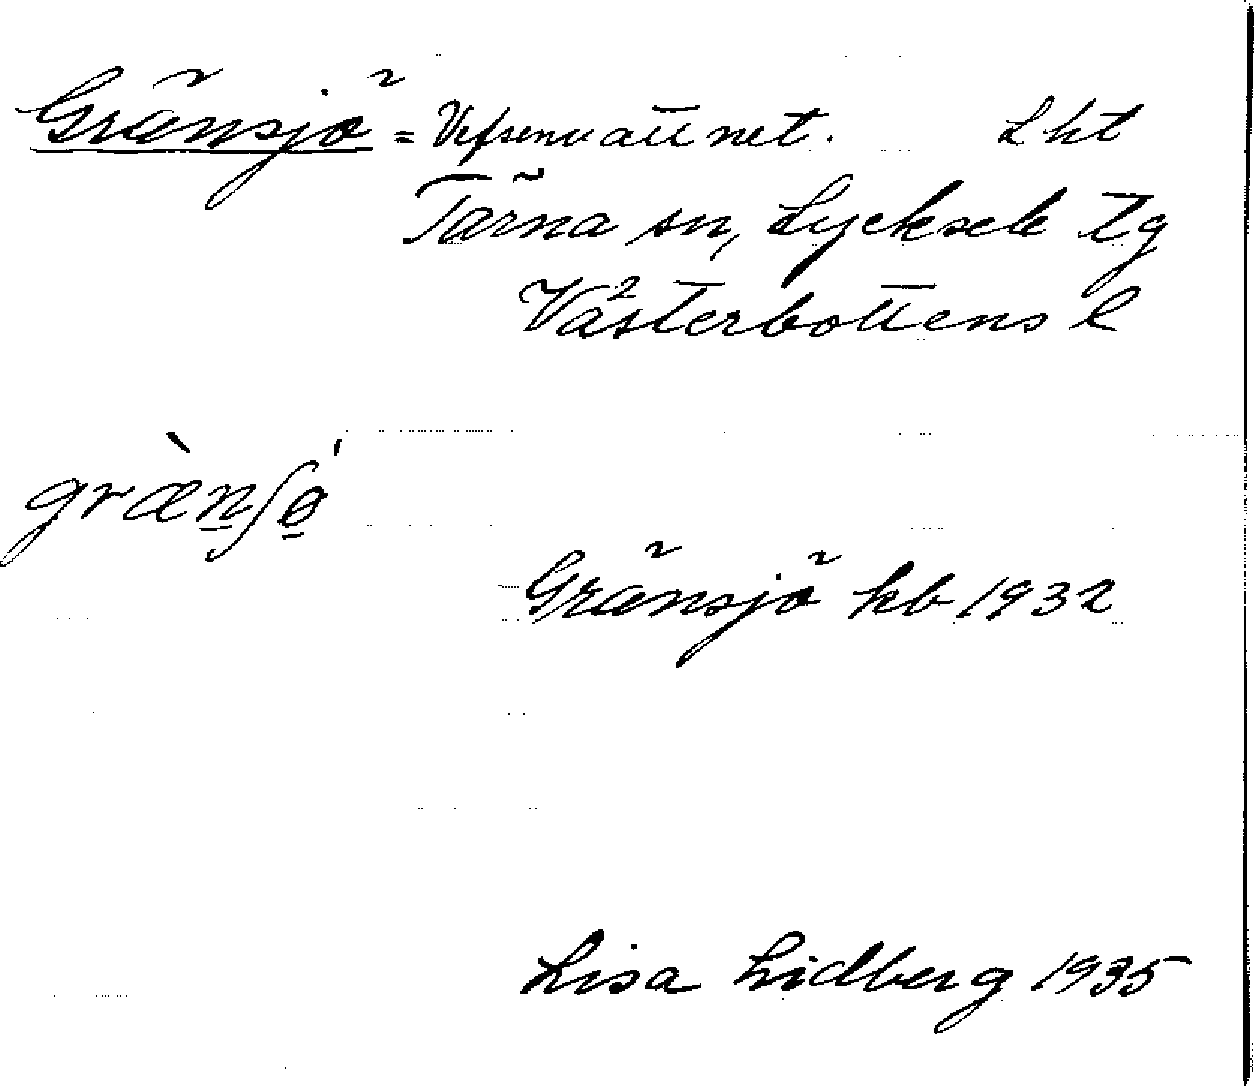 Gränsjö = Vefsenvattnet. Lht
Tärna sn, Lycksele tg
Västerbottens l
græ̀nʃǿ̠
Gränsjö kb 1932
Lisa Lidberg 1935